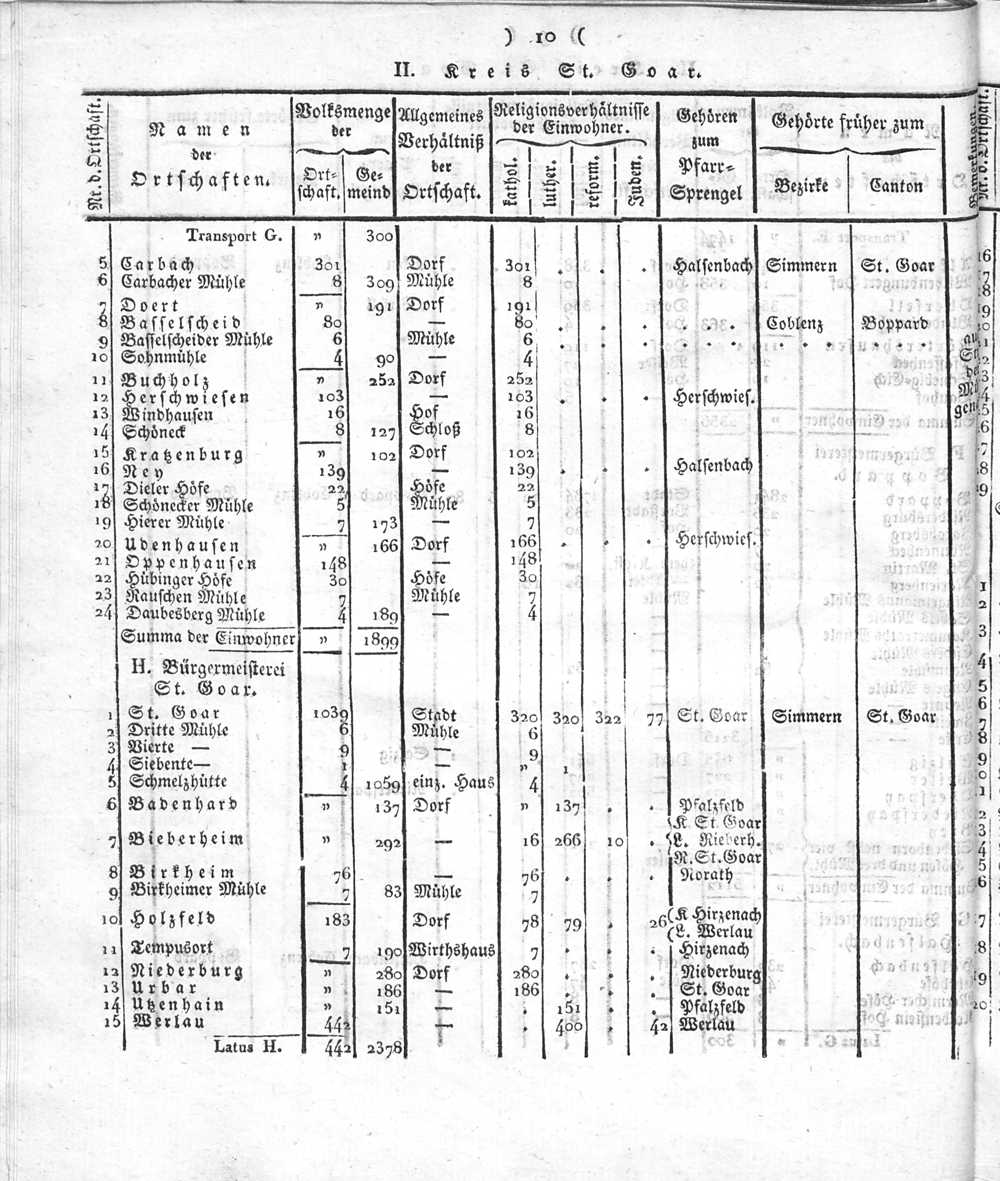 ) 10 (
II. Kreis St. Goar.
Nr. d. Ortschaft. Namen der Ortschaften. Volksmenge der Ortschaft. Gemeind Allgemeines Verhältniß der Ortschaft. Religionsverhältnisse der Einwohner. kathol. luther. reform. Juden. Gehören zum Pfarr-Sprengel Gehörte früher zum Bezirke Canton Bemerkungen. Nr. d. Ortschaft.
Transport G. „ 300
5 Carbach 301 Dorf 301 . . . Halsenbach Simmern St. Goar
6 Carbacher Mühle 8 309 Mühle 8
7 Doert „ 191 Dorf 191 . . .
8 Basselscheid 80 — 80 . . . . . . Coblenz Boppard
9 Basselscheider Mühle 6 Mühle 6 . . .
10 Sohnmühle 4 90 — 4
11 Buchholz „ 252 Dorf 252 . . .
12 Herschwiesen 103 — 103 . . . Herschwies.
13 Windhausen 16 Hof 16
14 Schöneck 8 127 Schloß 8
15 Kratzenburg „ 102 Dorf 102 . . .
16 Ney 139 — 139 . . . Halsenbach
17 Dieler Höfe 22 Höfe 22
18 Schönecker Mühle 5 Mühle 5
19 Hierer Mühle 7 173 — 7
20 Udenhausen „ 166 Dorf 166 . . . Herschwies.
21 Oppenhausen 148 — 148
22 Hübinger Höfe 30 Höfe 30
23 Rauschen Mühle 7 Mühle 7
24 Daubesberg Mühle 4 189 — 4
Summa der Einwohner „ 1899
H. Bürgermeisterei
St. Goar.
1 St. Goar 1039 Stadt 320 320 322 77 St. Goar Simmern St. Goar
2 Dritte Mühle 6 Mühle 6
3 Vierte — 9 — 9
4 Siebente— 1 — „
5 Schmelzhütte 4 1059 einz. Haus 4
6 Badenhard „ 137 Dorf „ 137 . . Pfalzfeld
(K St. Goar
7 Bieberheim „ 292 — 16 266 10 . (L. Bieberh.
(R. St. Goar
8 Birkheim 76 — 76 . . . Norath
9 Birkheimer Mühle 7 83 Mühle 7
10 Holzfeld 183 Dorf 78 79 . 26 (K Hirzenach
(L. Werlau
11 Tempusort 7 190 Wirthshaus 7 . . . Hirzenach
12 Niederburg „ 280 Dorf 280 . . . Niederburg
13 Urbar „ 186 — 186 . . . St. Goar
14 Utzenhain „ 151 — . 151 . . Pfalzfeld
15 Werlau 442 — . 400 . 42 Werlau
Latus H. 442 2378